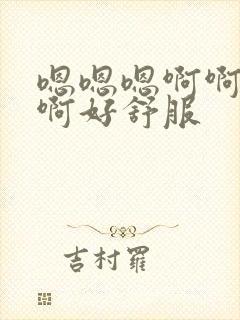 嗯嗯嗯啊啊
啊好舒服
吉村羅